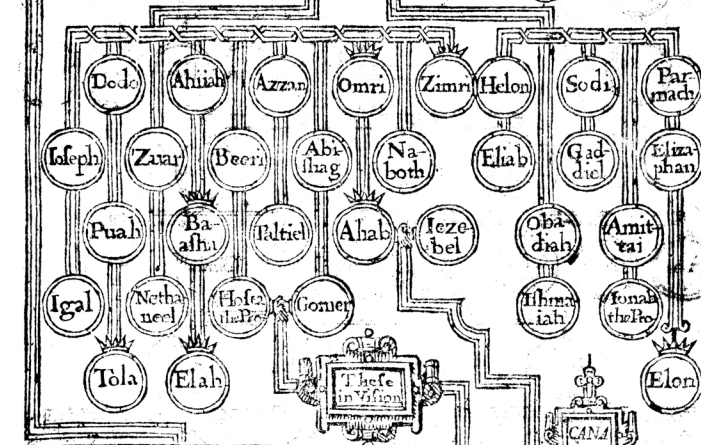 Dodo
Ahiiah
Azzan
Omri
Zimri
Helon
Sodi
Par-
nach
Ioseph
Zuar
Beeri
Abi-
shag
Na-
both
Eliab
Gad-
diel
Eliza-
phan
Puah
Ba-
asha
Paltiel
Ahab
Ieze-
bel
Oba-
diah
Amit-
tai
Igal
Netha-
neel
Hosea
the Pro
Gomer
Ishma-
iah
Ionah
the Pro
Tola
Elah
These
in Vision
Elon
CANA